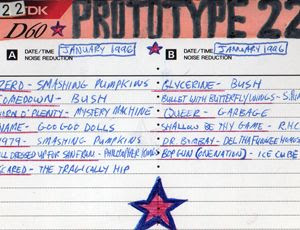 22
TDK
D60
PROTOTYPE 22
A
DATE/TIME
NOISE REDUCTION
JANUARY 1996
B
DATE/TIME
NOISE REDUCTION
JANUARY 1996
ZERO - SMASHING PUMPKINS
COMEDOWN - BUSH
HORN O' PLENTY - MYSTERY MACHINE
NAME - GOO GOO DOLLS
1979 - SMASHING PUMPKINS
ALL DRESSED UP FOR SAN FRAN - PHILOSOPHER KINGS
SCARED - THE TRAGICALLY HIP
GLYCERINE - BUSH
BULLET WITH BUTTERFLY WINGS -
QUEER - GARBAGE
SHALLOW BE THY GAME - R.H.C
DR. BOMBAY - DEL THA FUNKEE HOMO
BOP GUN (ONE NATION) - ICE CUBE